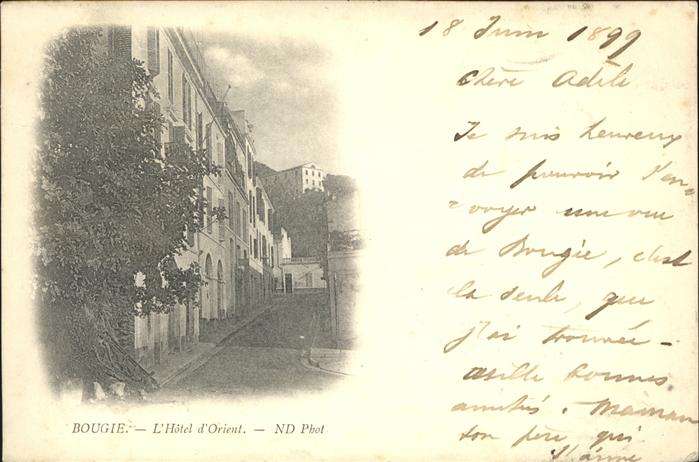 18 Juin 1899
Chère Adèle
Je suis heureux
de pouvoir t'en=
=voyer une vue
de Bougie, c'est
la seule, que
j'ai trouvée -
mille bonnes
amitiés. Maman
ton père qui
t'aime
BOUGIE. — L'Hôtel d'Orient. — ND Phot